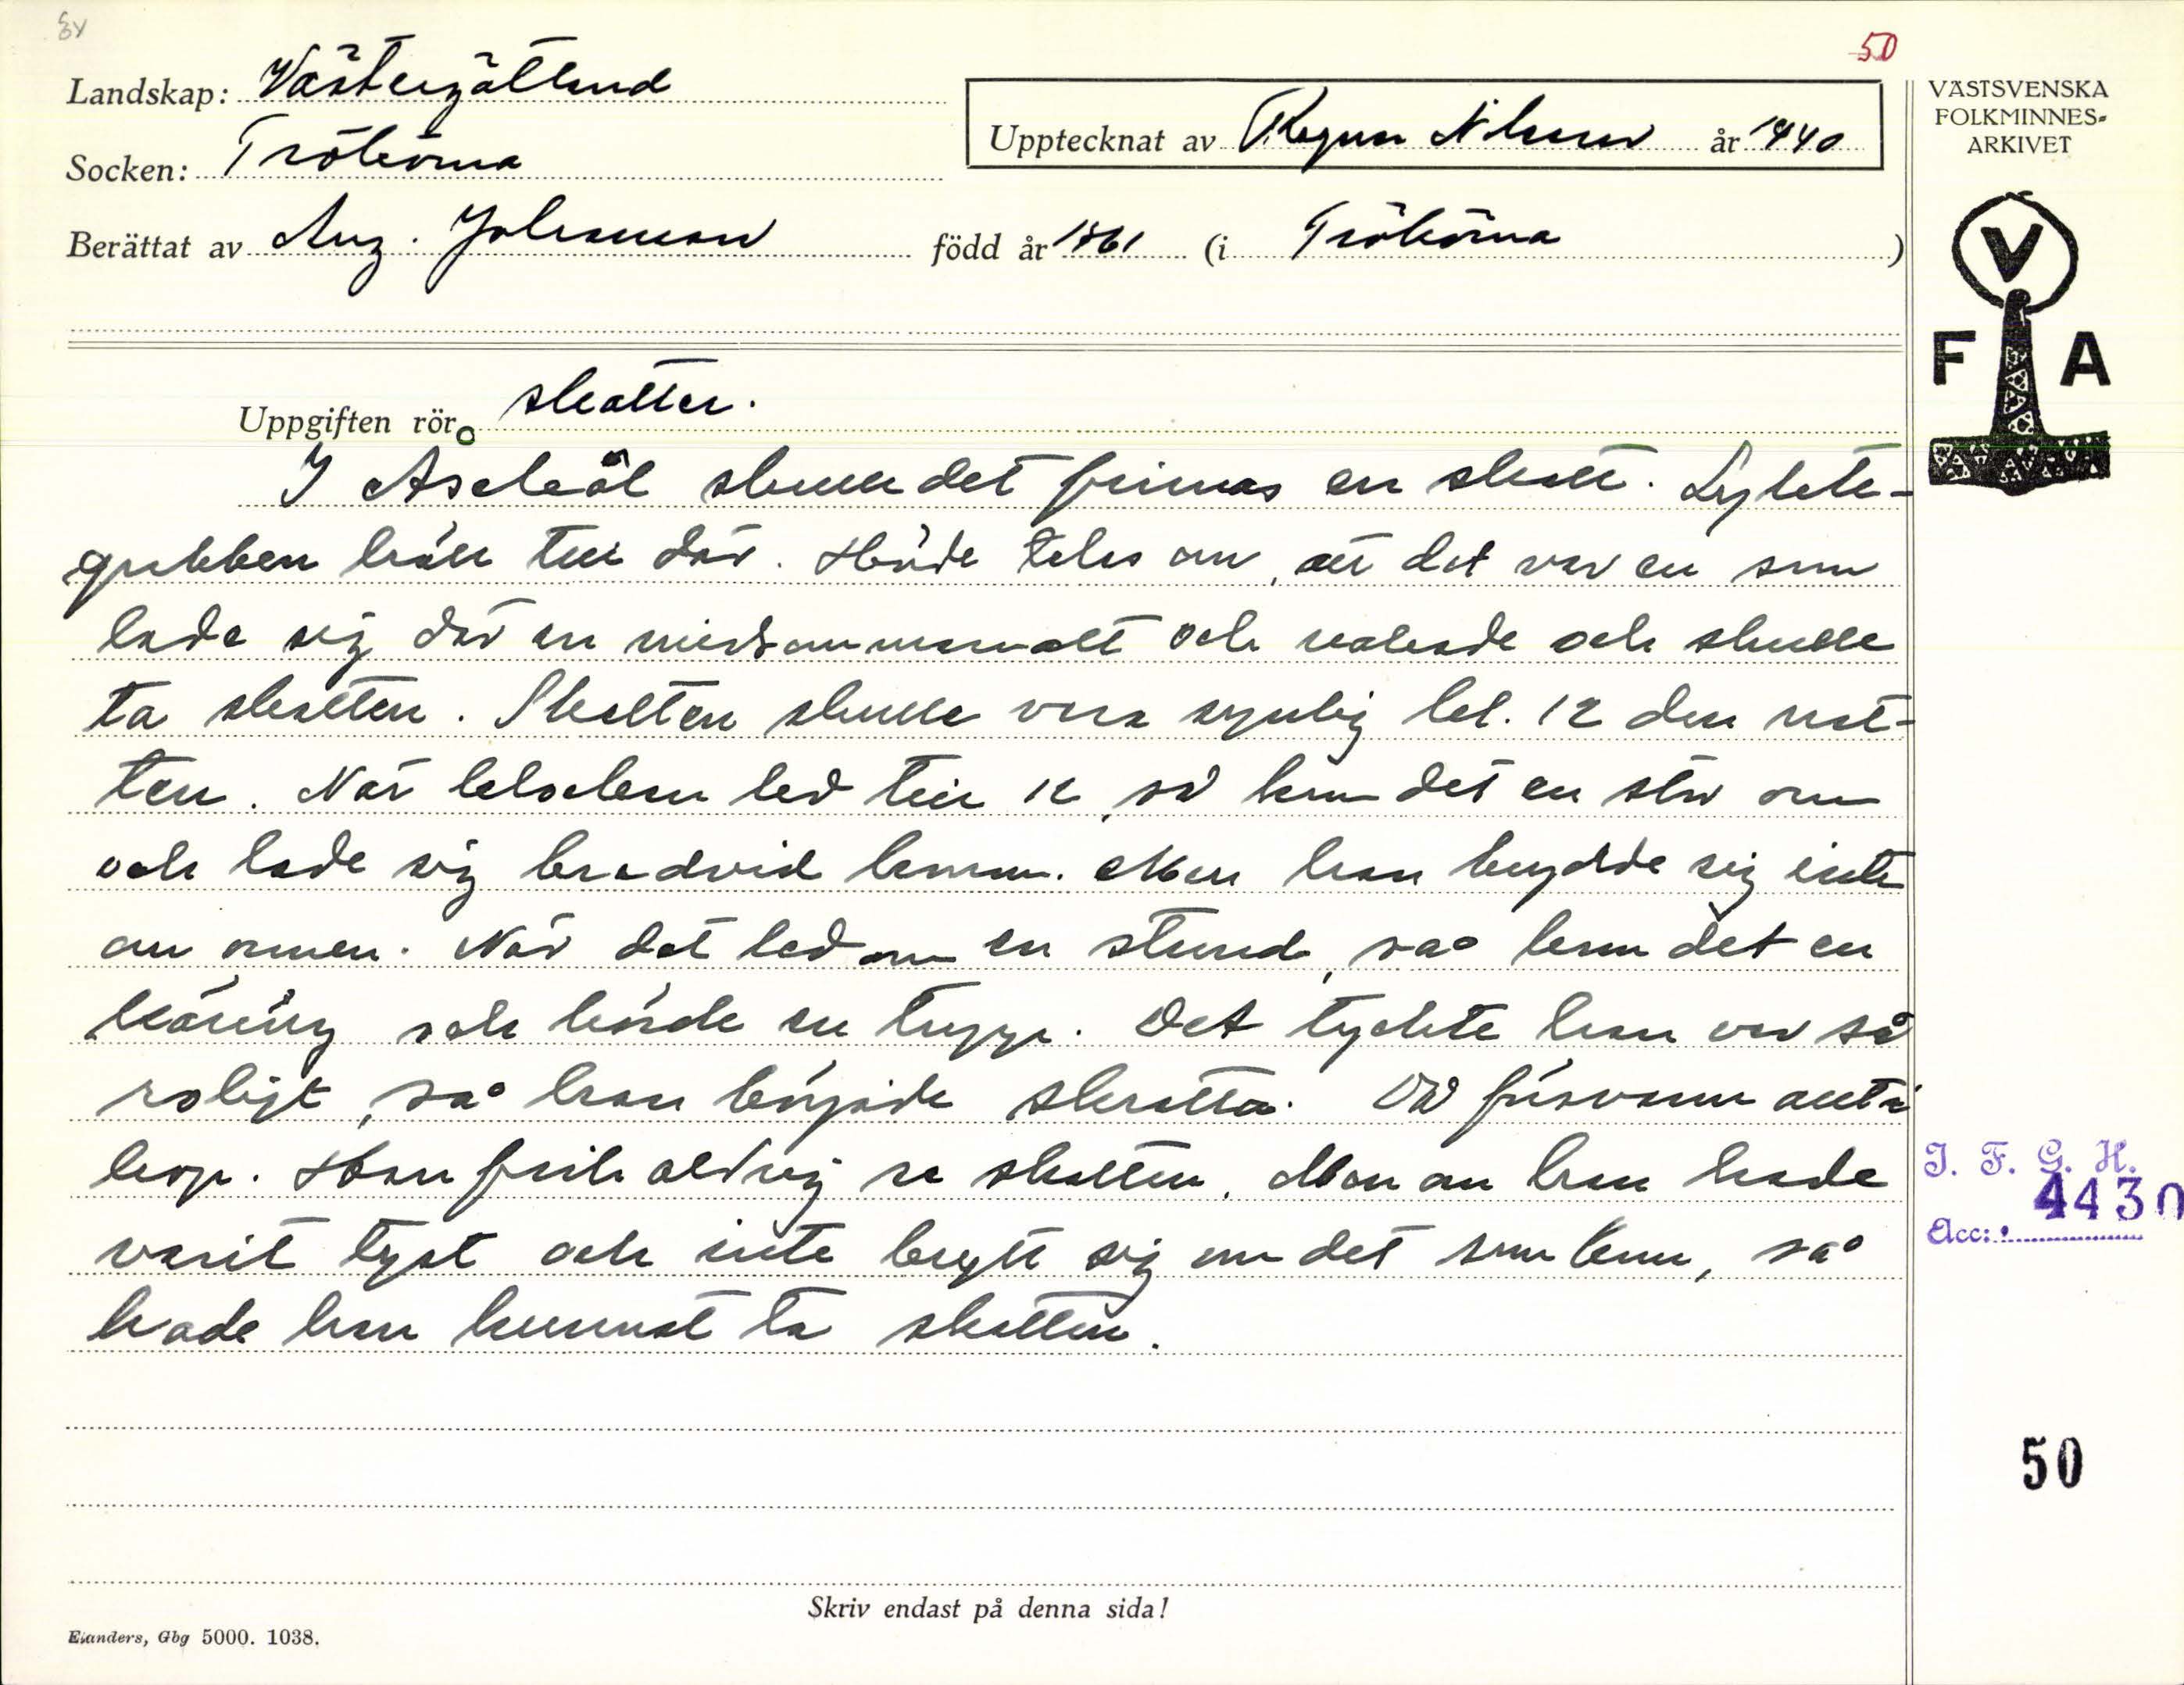 50
Landskap: Västergötland
Socken: Trökörna
Upptecknat av Ragnar Nilsson år 1940
Berättat av Aug. Johansson född år 1861 (i Trökörna)
VÄSTSVENSKA
FOLKMINNES-
ARKIVET
V
F A
Uppgiften rör skatter.
I Åsekäl skulle det finnas en skatt. Lykte-
gubben höll till där. Hörde talas om, att det var en som
lade sig där en midsommarnatt och vakade och skulle
ta skatten. Skatten skulle vara synlig kl. 12 den nat-
ten. När klockan led till 12, så kom det en stor orm
och lade sig bredvid honom. Men han brydde sig inte
om ormen. När det led om en stund, så kom det en
käring och körde en tupp. Det tyckte han var så
roligt, så han började skratta. Då försvann allti-
hop. Han fick aldrig se skatten. Men om han hade
varit tyst och inte brytt sig om det som kom, så
hade han kunnat ta skatten.
I. F. G. H.
Acc: 4430
50
Skriv endast på denna sida!
Elanders, Gbg 5000. 1038.